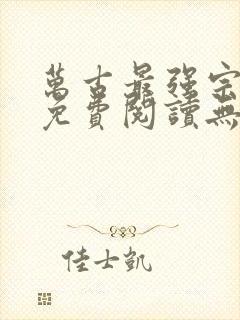 萬古最強宗
免費閱讀無
佳士凱